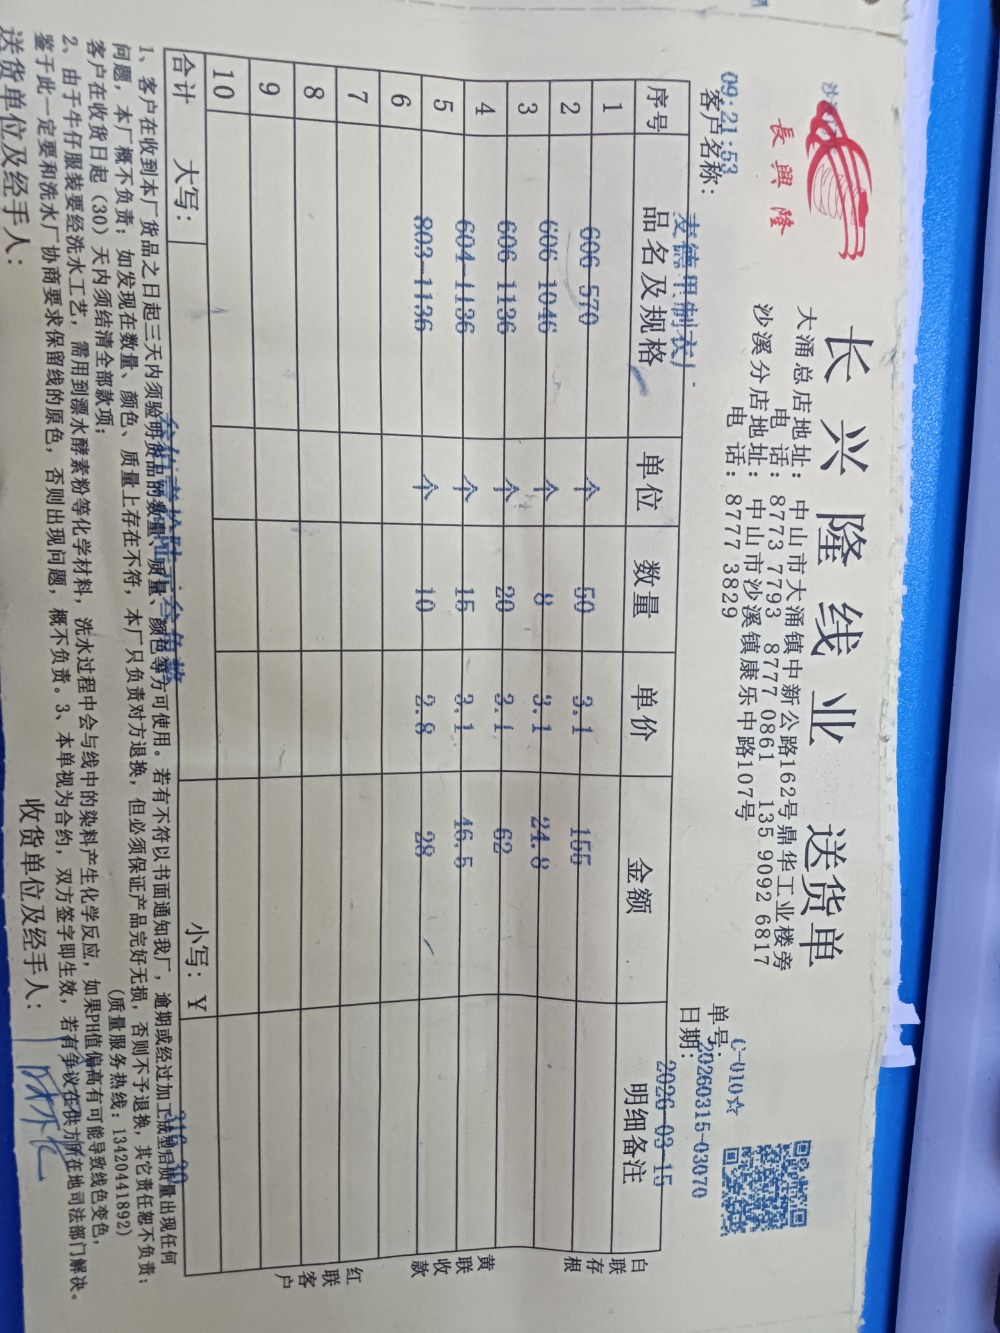 長興隆
长兴隆线业 送货单
大涌总店地址：中山市大涌镇中新公路162号鼎华工业楼旁
电 话：8773 7793 8777 0861 135 9092 6817
沙溪分店地址：中山市沙溪镇康乐中路107号
电 话：8777 3829
C-010☆
单号：20260315-03070
日期：2026-03-15
09:21:53
客户名称：麦德里制衣厂
序号 品名及规格 单位 数量 单价 金额 明细备注
1 606-570 个 50 3.1 155
2 606-1046 个 8 3.1 24.8
3 606-1136 个 20 3.1 62
4 604-1136 个 15 3.1 46.5
5 803-1136 个 10 2.8 28
6
7
8
9
10
合计 大写： 小写：￥
白联存根
黄联收款
红联客户
1、客户在收到本厂货品之日起三天内须验明货品的数量、质量、颜色等方可使用。若有不符以书面通知我厂，逾期或经过加工成型后质量出现任何
问题，本厂概不负责；如发现在数量、颜色、质量上存在不符，本厂只负责对方退换，但必须保证产品完好无损，否则不予退换，其它责任恕不负责；
客户在收货日起（30）天内须结清全部款项； （质量服务热线：13420441892）
2、由于牛仔服装要经洗水工艺，需用到漂水酵素粉等化学材料，洗水过程中会与线中的染料产生化学反应，如果PH值偏高有可能导致线色变色，
鉴于此一定要和洗水厂协商要求保留线的原色，否则出现问题，概不负责。3、本单视为合约，双方签字即生效，若有争议在供方所在地司法部门解决。
送货单位及经手人： 收货单位及经手人：